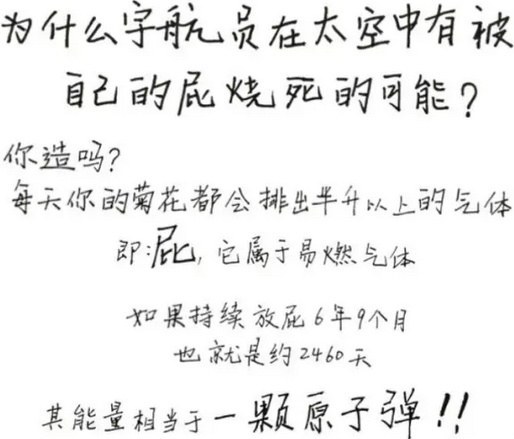 为什么宇航员在太空中有被
自己的屁烧死的可能？
你造吗？
每天你的菊花都会排出半升以上的气体
即：屁，它属于易燃气体
如果持续放屁6年9个月
也就是约2460天
其能量相当于一颗原子弹！！